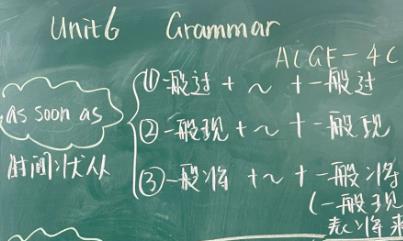 Unit6 Grammar
ACGF-4C
as soon as
时间状从
① 一般过 + ~ + 一般过
② 一般现 + ~ + 一般现
③ 一般将 + ~ + 一般将
(一般现
表将来